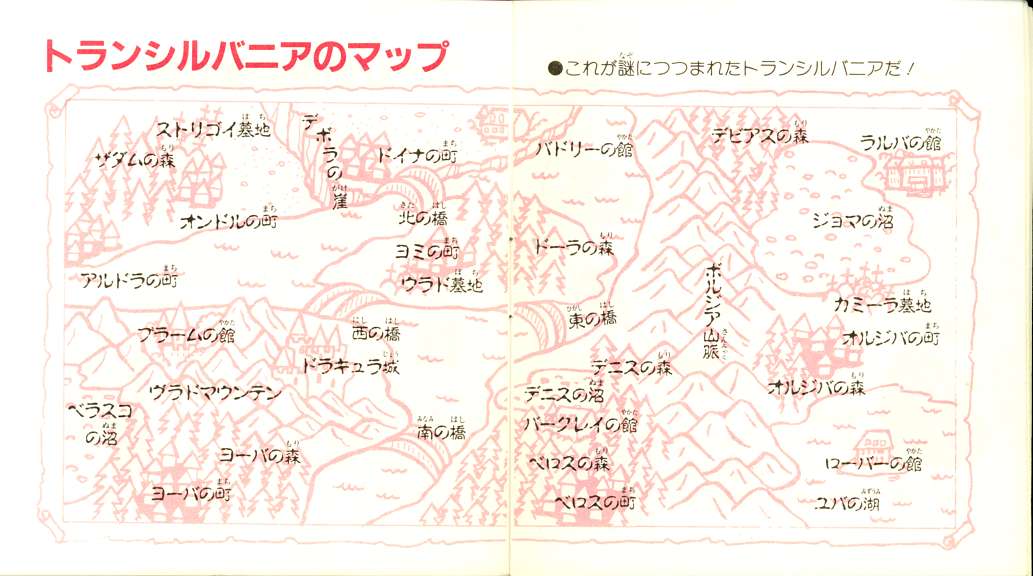 トランシルバニアのマップ
●これが謎につつまれたトランシルバニアだ！
ストリゴイ墓地
ザダムの森
デボラの崖
ドイナの町
オンドルの町
北の橋
ヨミの町
アルドラの町
ウラド墓地
ブラームの館
西の橋
ドラキュラ城
ヴラドマウンテン
ベラスコ
の沼
南の橋
ヨーバの森
ヨーバの町
バドリーの館
デビアスの森
ラルバの館
ジョマの沼
ドーラの森
ボルジア山脈
カミーラ墓地
東の橋
オルジバの町
デニスの森
オルジバの森
デニスの沼
バークレイの館
ベロスの森
ローバーの館
ベロスの町
ユバの湖